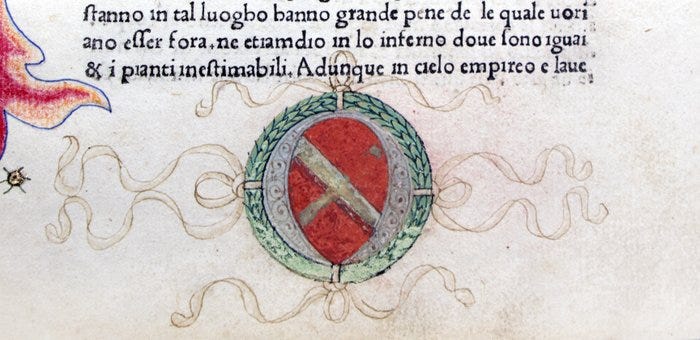 stanno in tal luogho hanno grande pene de le quale uori
ano esser fora, ne etiamdio in lo inferno doue sono iguai
& i pianti inestimabili. Adunque in cielo empireo e laue